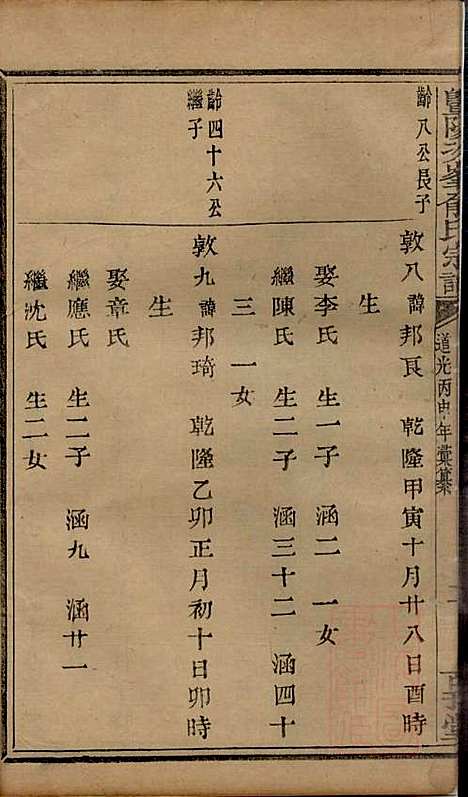 暨陽
氏宗譜
道光丙申年彙纂
齡八公長子
敦八 諱邦良 乾隆甲寅十月廿八日酉時
生
娶李氏 生一子 涵二 一女
繼陳氏 生二子 涵三十二 涵四十
三 一女
齡四十六公
繼子
敦九 諱邦琦 乾隆乙卯正月初十日卯時
生
娶章氏
繼應氏 生二子 涵九 涵廿一
繼沈氏 生二女